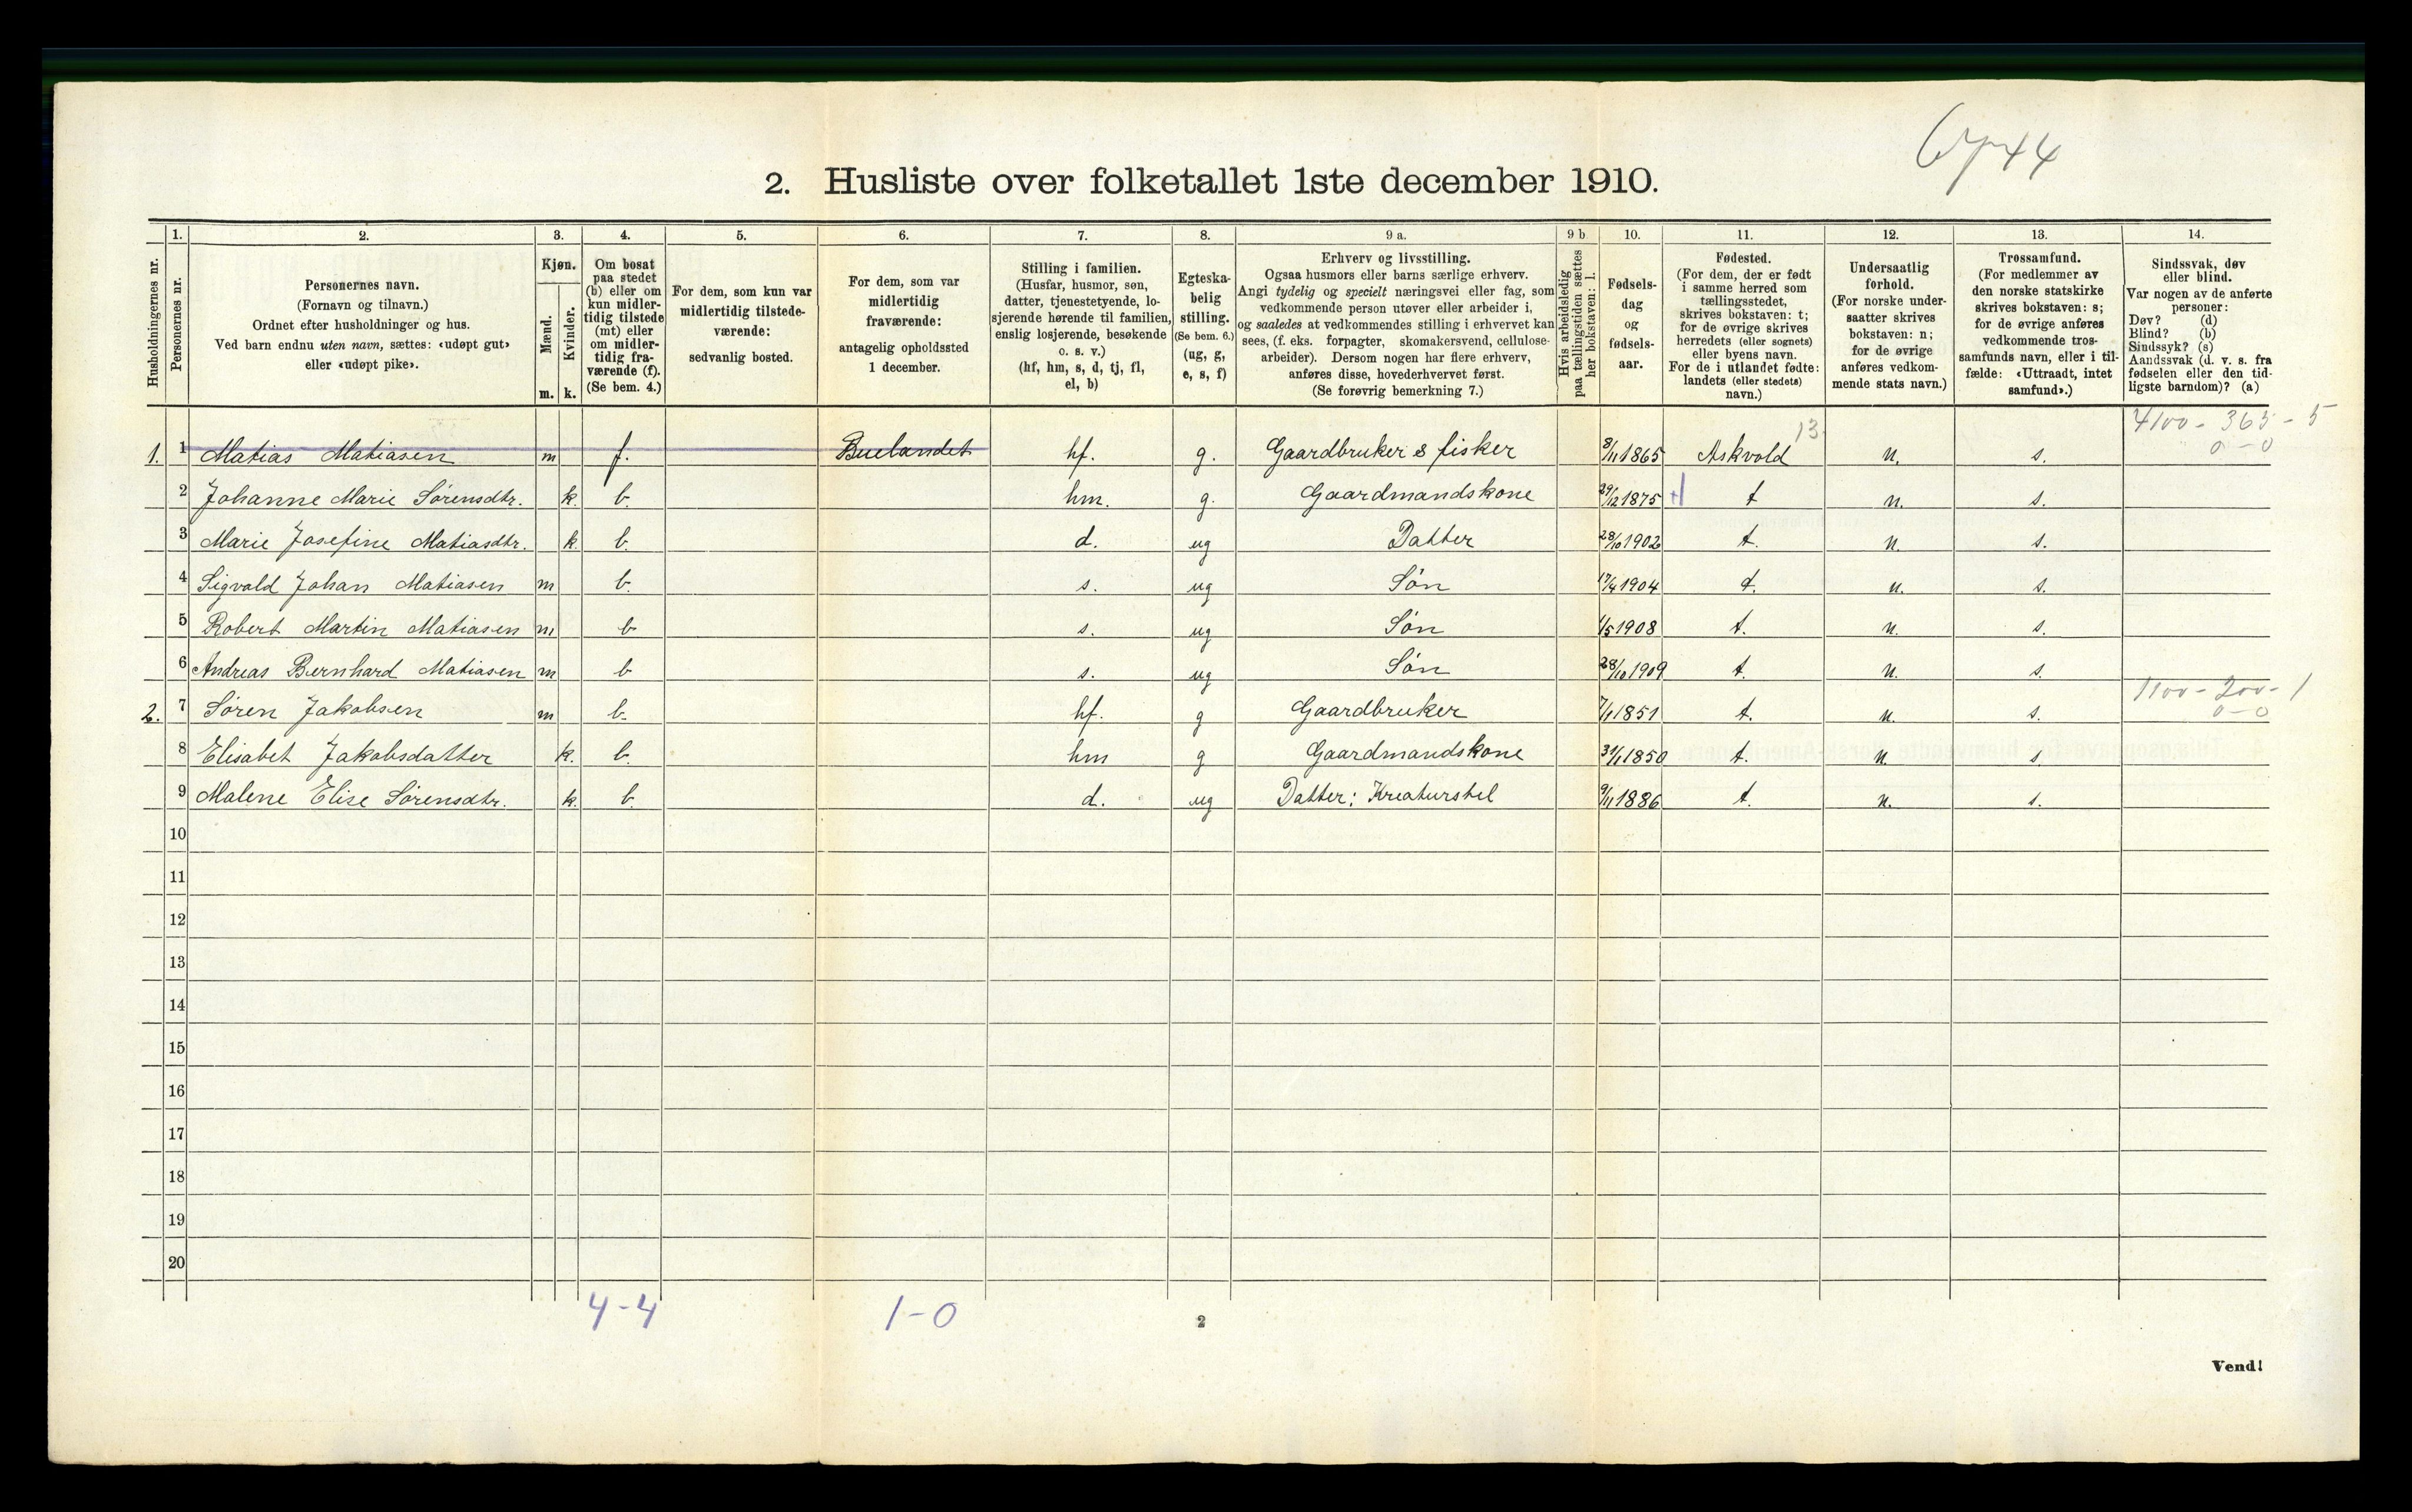 2. Husliste over folketallet 1ste december 1910.
1. 2. 3. 4. 5. 6. 7. 8. 9 a. 9 b 10. 11. 12. 13. 14.
Husholdningernes nr.
Personernes nr.
Personernes navn.
(Fornavn og tilnavn.)
Ordnet efter husholdninger og hus.
Ved barn endnu uten navn, sættes: «udøpt gut»
eller «udøpt pike».
Kjøn.
Mænd.
Kvinder.
m. k.
Om bosat
paa stedet
(b) eller om
kun midler-
tidig tilstede
(mt) eller
om midler-
tidig fra-
værende (f).
(Se bem. 4.)
For dem, som kun var
midlertidig tilstede-
værende:
sedvanlig bosted.
For dem, som var
midlertidig
fraværende:
antagelig opholdssted
1 december.
Stilling i familien.
(Husfar, husmor, søn,
datter, tjenestetyende, lo-
sjerende hørende til familien,
enslig losjerende, besøkende
o. s. v.)
(hf, hm, s, d, tj, fl,
el, b)
Egteska-
belig
stilling.
(Se bem. 6.)
(ug, g,
e, s, f)
Erhverv og livsstilling.
Ogsaa husmors eller barns særlige erhverv.
Angi tydelig og specielt næringsvei eller fag, som
vedkommende person utøver eller arbeider i,
og saaledes at vedkommendes stilling i erhvervet kan
sees, (f. eks. forpagter, skomakersvend, cellulose-
arbeider). Dersom nogen har flere erhverv,
anføres disse, hovederhvervet først.
(Se forøvrig bemerkning 7.)
Hvis arbeidsledig
paa tællingstiden sættes
her bokstaven: l.
Fødsels-
dag
og
fødsels-
aar.
Fødested.
(For dem, der er født
i samme herred som
tællingsstedet,
skrives bokstaven: t;
for de øvrige skrives
herredets (eller sognets)
eller byens navn.
For de i utlandet fødte:
landets (eller stedets)
navn.)
Undersaatlig
forhold.
(For norske under-
saatter skrives
bokstaven: n;
for de øvrige
anføres vedkom-
mende stats navn.)
Trossamfund.
(For medlemmer av
den norske statskirke
skrives bokstaven: s;
for de øvrige anføres
vedkommende tros-
samfunds navn, eller i til-
fælde: «Uttraadt, intet
samfund».)
Sindssvak, døv
eller blind.
Var nogen av de anførte
personer:
Døv? (d)
Blind? (b)
Sindssyk? (s)
Aandssvak (d. v. s. fra
fødselen eller den tid-
ligste barndom)? (a)
4100 - 365 - 5
0 - 0
1. 1 Matias Matiasen m f. Buelandet hf. g. Gaardbruker & fisker 8/11 1865 Askvold 13 n. s.
2 Johanne Marie Sørensdtr. k. b. hm. g. Gaardmandskone 29/12 1875 t n. s.
3 Marie Josefine Matiasdtr. k. b. d. ug Datter 28/10 1902 t. n. s.
4 Sigvald Johan Matiasen m b. s. ug Søn 17/4 1904 t. n. s.
5 Robert Martin Matiasen m b s. ug Søn 1/5 1908 t. n. s.
6 Andreas Bernhard Matiasen m b s. ug Søn 28/10 1909 t. n. s.
1100 - 200 - 1
0 - 0
2. 7 Søren Jakobsen m b. hf. g Gaardbruker 7/11 1851 t. n. s.
8 Elisabet Jakobsdatter k. b. hm g Gaardmandskone 31/1 1850 t. n. s
9 Malene Elise Sørensdtr. k. b. d. ug Datter; Kreaturstel 9/11 1886 t. n. s.
10
11
12
13
14
15
16
17
18
19
20
4-4 1-0
2
Vend!